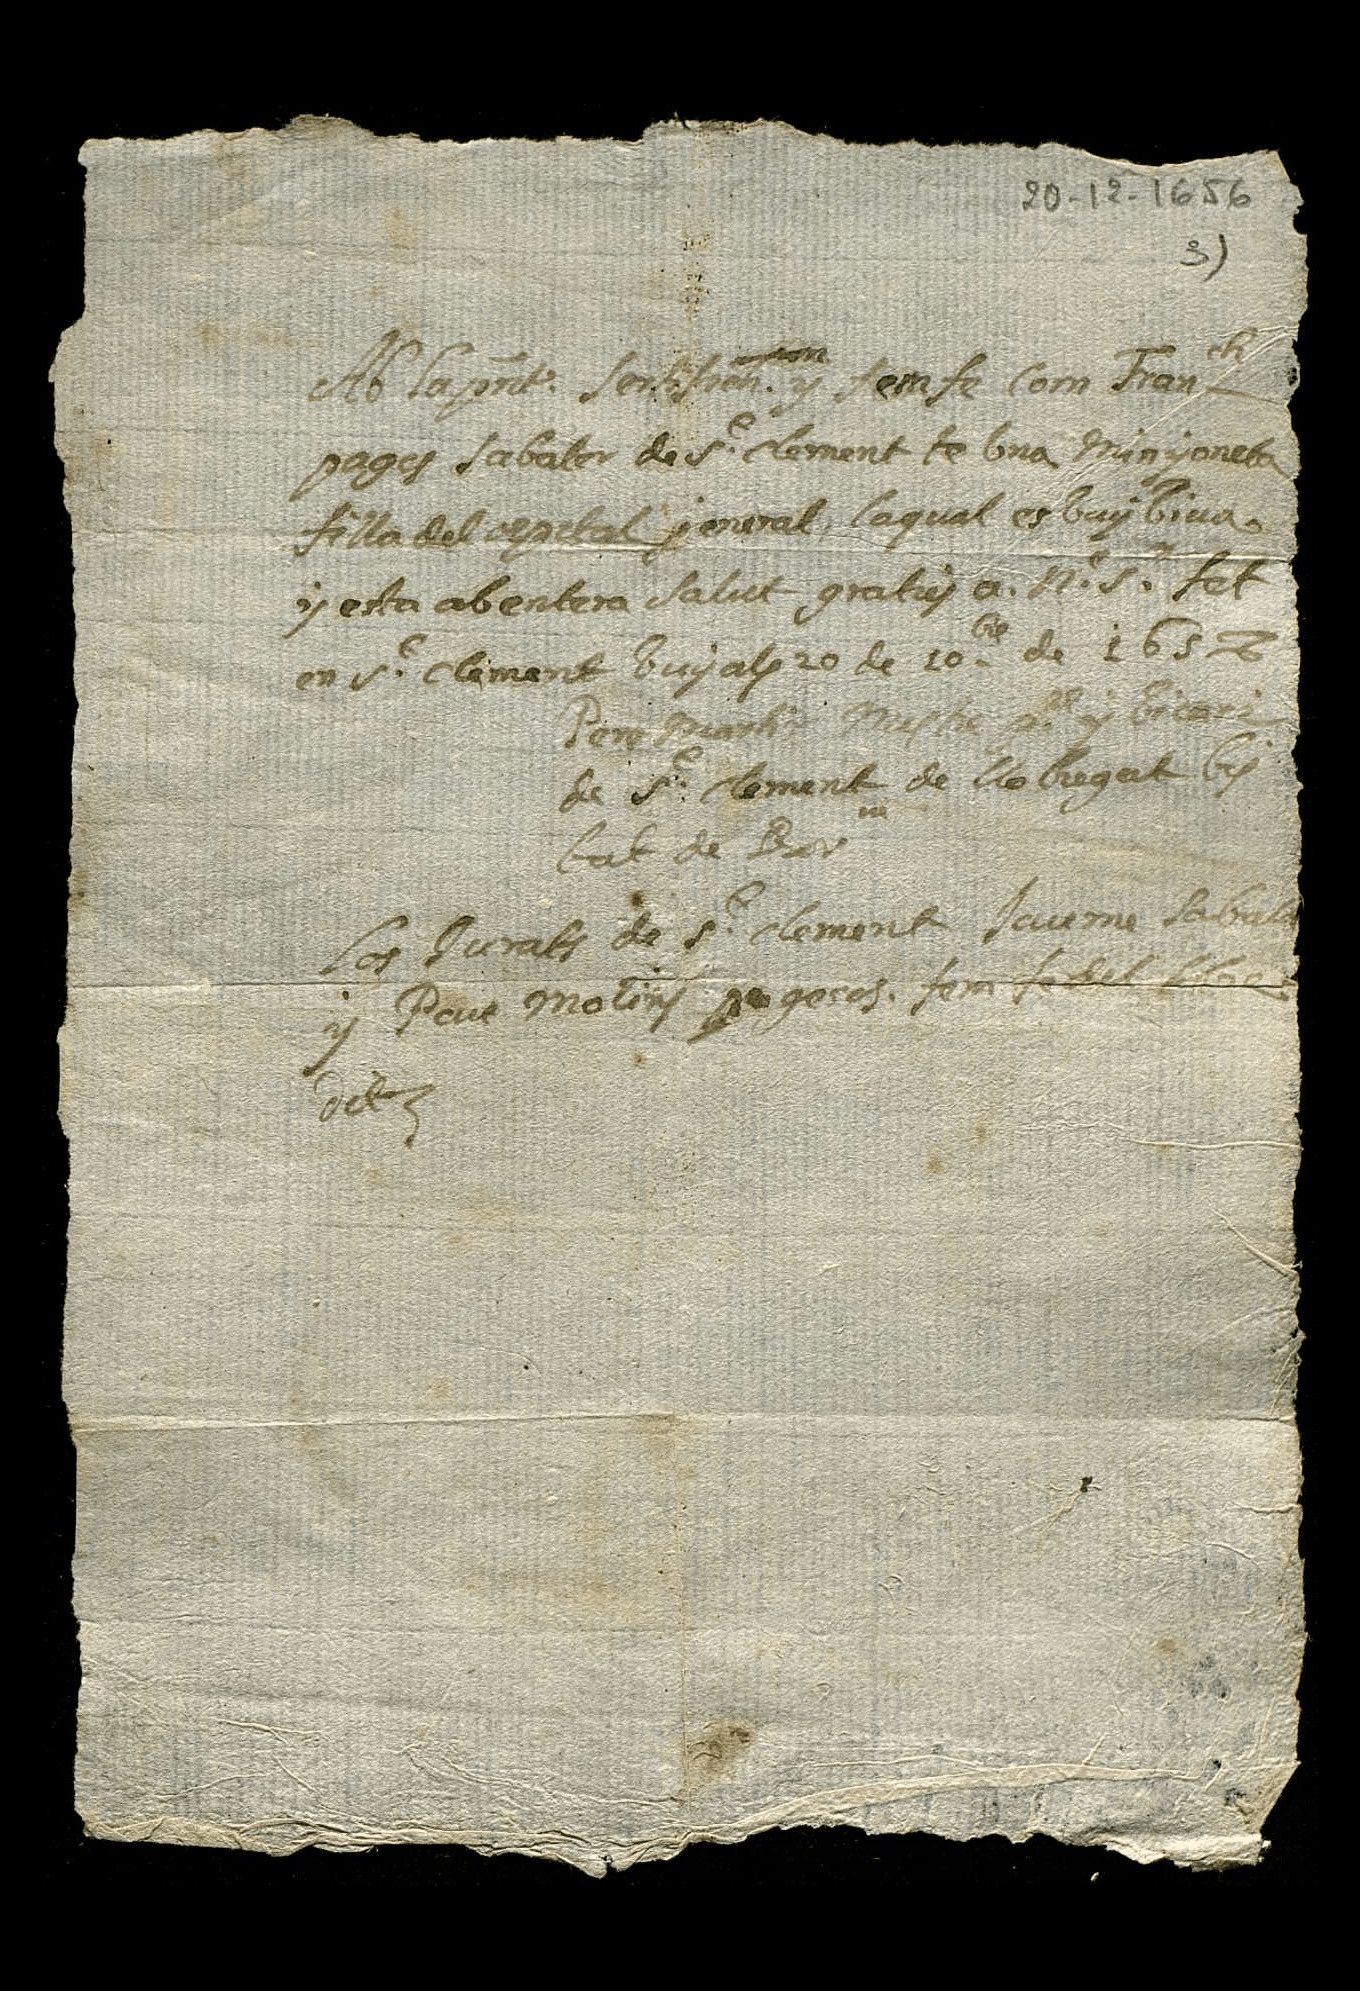 20-12-1656
3)
Ab la pnt. sertifican y fem fe com Fran.ch
pages sabater de s.t clement te bna minyoneta
filla del espital jeneral, la qual es buy biua
y esta ab entera salut gratis a. n.e s.r fet
en s.t clement buy als 20 de 10.bre de 165
Pere Marti p.re y bicari
de s.t clement de llobregat bis
bat de Bar.na
los Jurats de s.t clement Jaume sabate
y Paue Molins pagesos. fem fe del
dit